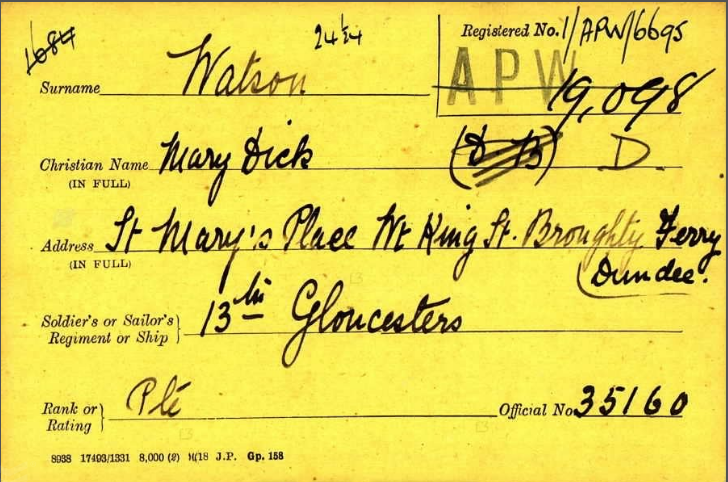 1684 24 Registered No. 1/APW/6695
Surname Watson APW 19,098
Christian Name Mary Dick (D B) D.
(IN FULL)
Address St Mary's Place Wt King St. Broughty Ferry
(IN FULL) (Dundee.
Soldier's or Sailor's } 13th Gloucesters
Regiment or Ship
Rank or } Pte Official No. 35160
Rating
8938 17493/1331 8,000 (2) 11/18 J.P. Gp. 158